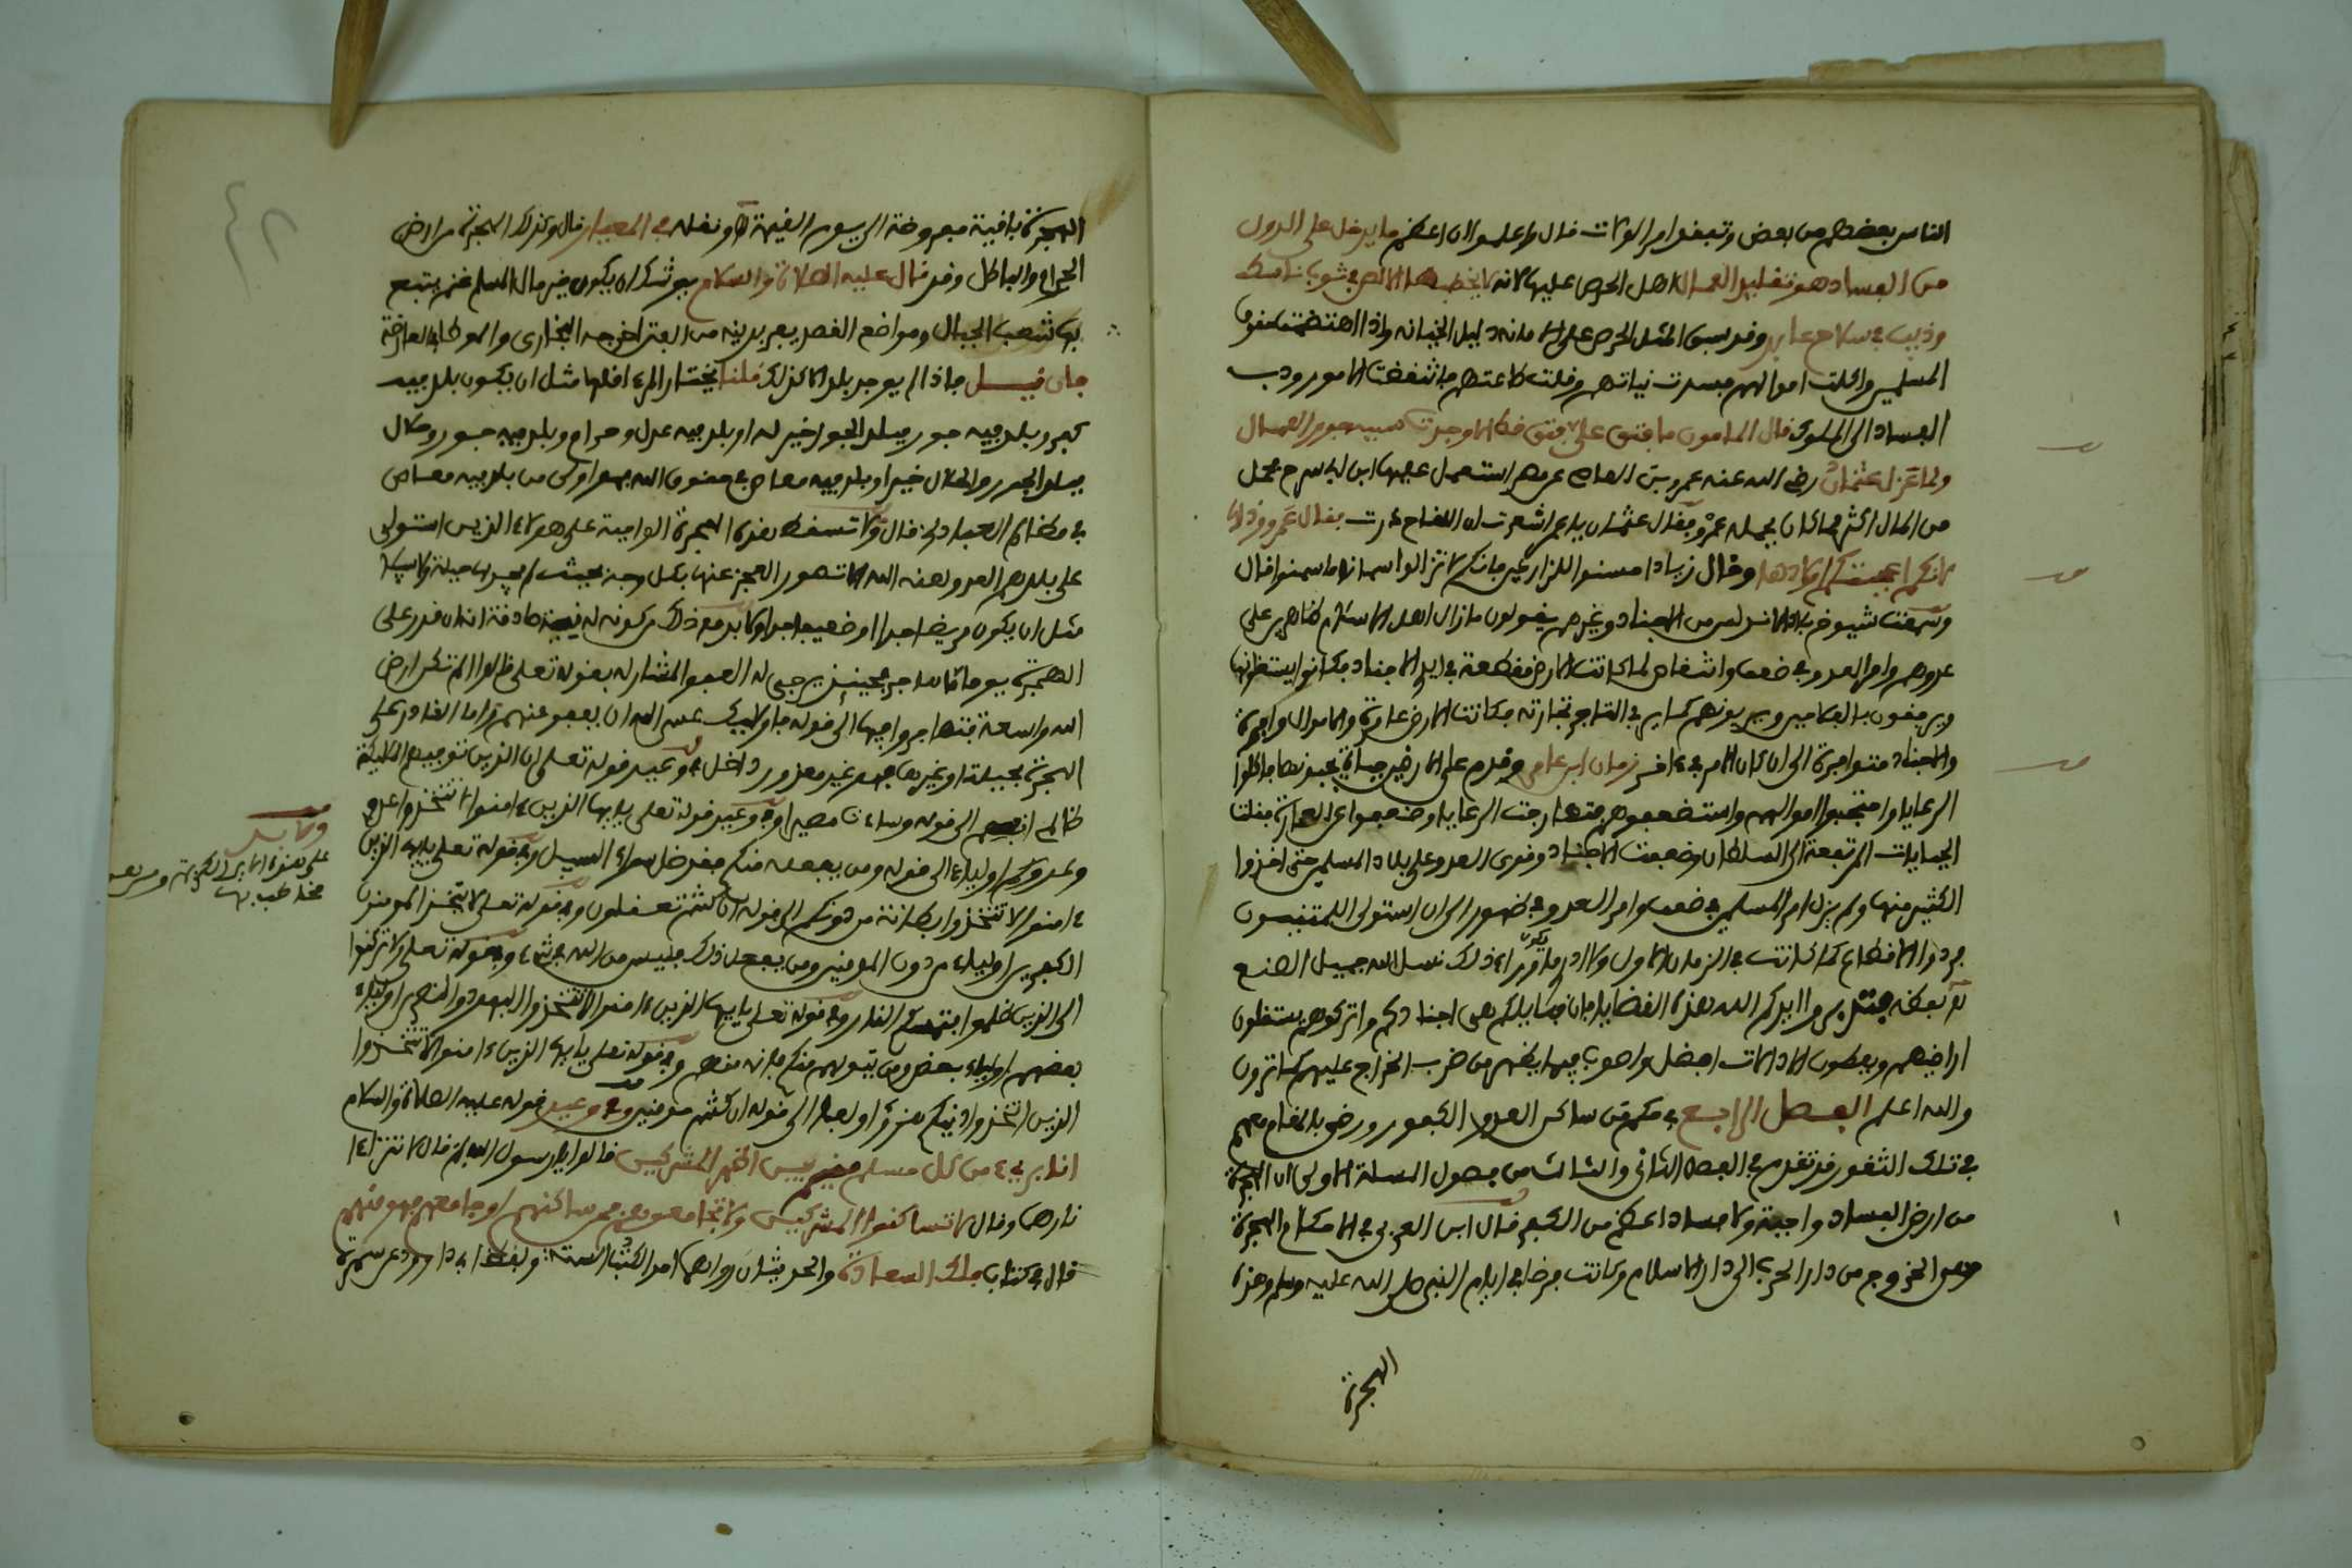 الناس بعضهم من بعض وتبغوا امر الولات قال واعلموا ان اعظم ما يدخل على الدول
من الفساد هو تقليد العمال اهل الحرص عليها لانه لا يخطبها الا لص في ثوب ناسك
وذيب في سلاح عابد وقد سبق المثل الحرص على الامانه دليل الخيانه واذا اهتضمت حقوق
المسلمين واكلت اموالهم فسدت نياتهم وقلت طاعتهم فانتقضت الامور ودب
الفساد الى الملوك قال المامون ما فتق علي فتق قط الا وجدت سببه جور العمال
ولما عزل عثمان رضي الله عنه عمرو بن العاص عن مصر استعمل عليها ابن ابي سرح فحمل
من المال اكثر مما كان يحمله عمرو فقال عثمان يا عمرو اشعرت ان اللقاح درت فقال عمرو وذاك
لانكم اعجفتم اولادها وقال زياد احسنوا للمزارعين فانكم لا تزالوا سمانا ما سمنوا قال
وسمعت شيوخ بلاد الاندلس من الاجناد وغيرهم يقولون ما زال اهل الاسلام ظاهرين على
عدوهم وامر العدو في ضعف وانتقاص لما كانت الارض مقطعة في ايدي الاجناد فكانوا يستغلونها
ويرفقون بالفلاحين ويربونهم كما يربي التاجر تجارته فكانت الارض عامرة والاموال وافرة
والاجناد متوافرة الى ان كان الامر في ءاخر زمان ابن ابي عامر وقدم على الارض جباة يجبونها فاكلوا
الرعايا واجتحبوا اموالهم واستضعفوهم فتهاربت الرعايا وضعفوا عن العمارة فقلت
الجبايات المرتفعة الى السلطان وضعفت الاجناد وقوي العدو على بلاد المسلمين حتى اخذوا
الكثير منها ولم يزل امر المسلمين في ضعف وامر العدو في ظهور الى ان استولى المتلثمون
فردوا الاقطاع كما كانت في الزمان الاول ولا ادري ما يكون وراء ذلك نسل الله جميل الصنع
له بعكنه فتدبروا ايدكم الله هذه القضايا فان قبايلكم هي اجنادكم واتركوهم يستغلون
اراضيهم ويعطون الاداءات افضل واصوب فيما يظهر من ضرب الخراج عليهم كما ترون
والله اعلم الفصل الرابع في حكم من ساكن العدو الكفور ورضي بالمقام معهم
في تلك الثغور قد تقدم في الفصل الثاني والثالث من فصول المسئلة الاولى ان الهجرة
من ارض الفساد واجبة ولا فساد اعظم من الكفر قال ابن العربي في الاحكام الهجرة
وهي الخروج من دار الحرب الى دار الاسلام وكانت فرضا في ايام النبي صلى الله عليه وسلم وهذه
الهجرة
الهجرة باقية مفروضة الى يوم القيمة ونقله في المعيار قال وكذلك الهجرة من ارض
الحرام والباطل وقد قال عليه الصلاة والسلام يوشك ان يكون خير مال المسلم غنم يتبع
بها شعب الجبال ومواضع القطر يفر بدينه من الفتن اخرجه البخاري والموطا
فان قيل فاذا لم يوجد بلد الا كذلك قلنا يختار المرء اقلها مثل ان يكون بلد فيه
كفر وبلد فيه جور فبلد الجور خير له او بلد فيه عدل وحرام وبلد فيه جور وحلال
فبلد الجور والحلال خير او بلد فيه معاص في حقوق الله فهو اولى من بلد فيه معاص
في مظالم العباد قال ولا تسقط هذه الهجرة الواجبة على هولاء الذين استولى
على بلدهم العدو لعنه الله الا تصور العجز عنها بكل وجه بحيث لم يجد لها حيلة ولا سبيلا
مثل ان يكون مريضا جدا او ضعيفا جدا ولا بد مع ذلك من كونه له نية صادقة انه ان قدر على
الهجرة يوما ما هاجر فحينئذ يرجى له العفو المشار له بقوله تعلى قالوا الم تكن ارض
الله واسعة فتهاجروا فيها الى قوله فاولايك عسى الله ان يعفو عنهم واما القادر على
الهجرة بحيلة او غيرها فهو غير معذور داخل في وعيد قوله تعلى ان الذين توفيهم المليكة
ظالمي انفسهم الى قوله وساءت مصيرا وفي وعيد قوله تعلى يايها الذين ءامنوا لا تتخذوا عدوي
وعدوكم اولياء الى قوله ومن يفعله منكم فقد ضل سواء السبيل وفي قوله تعلى يايها الذين
ءامنوا لا تتخذوا بطانة من دونكم الى قوله ان كنتم تعقلون وفي قوله تعلى لا يتخذ المومنون
الكفرين اولياء من دون المومنين ومن يفعل ذلك فليس من الله في شيء وفي قوله تعلى ولا تركنوا
الى الذين ظلموا فتمسكم النار وفي قوله تعلى يايها الذين ءامنوا لا تتخذوا اليهود والنصرى اولياء
بعضهم اولياء بعض ومن يتولهم منكم فانه منهم وفي قوله تعلى يايها الذين ءامنوا لا تتخذوا
الذين اتخذوا دينكم هزؤا ولعبا الى قوله ان كنتم مومنين وفي وعيد قوله عليه الصلاة والسلام
انا بريء من كل مسلم مقيم بين اظهر المشركين قالوا يا رسول الله لم قال لا تتراءا
نارهما وقال لا تساكنوا المشركين ولا تجامعوهم فمن ساكنهم او جامعهم فهو منهم
قال في كتاب فلك السعادة والحديثان رواهما احد الكتب الستة ولفظ ابي داوود عن سمرة